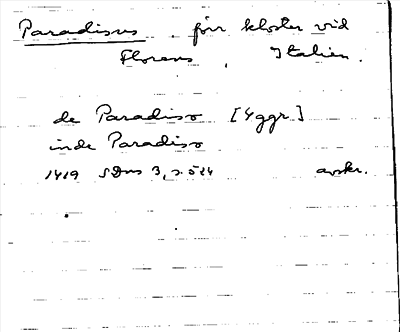 Paradisus förr kloster vid
Florens, Italien.
de Paradiso [4ggr.]
inde Paradiso
1419 SDns 3, s. 524 avskr.